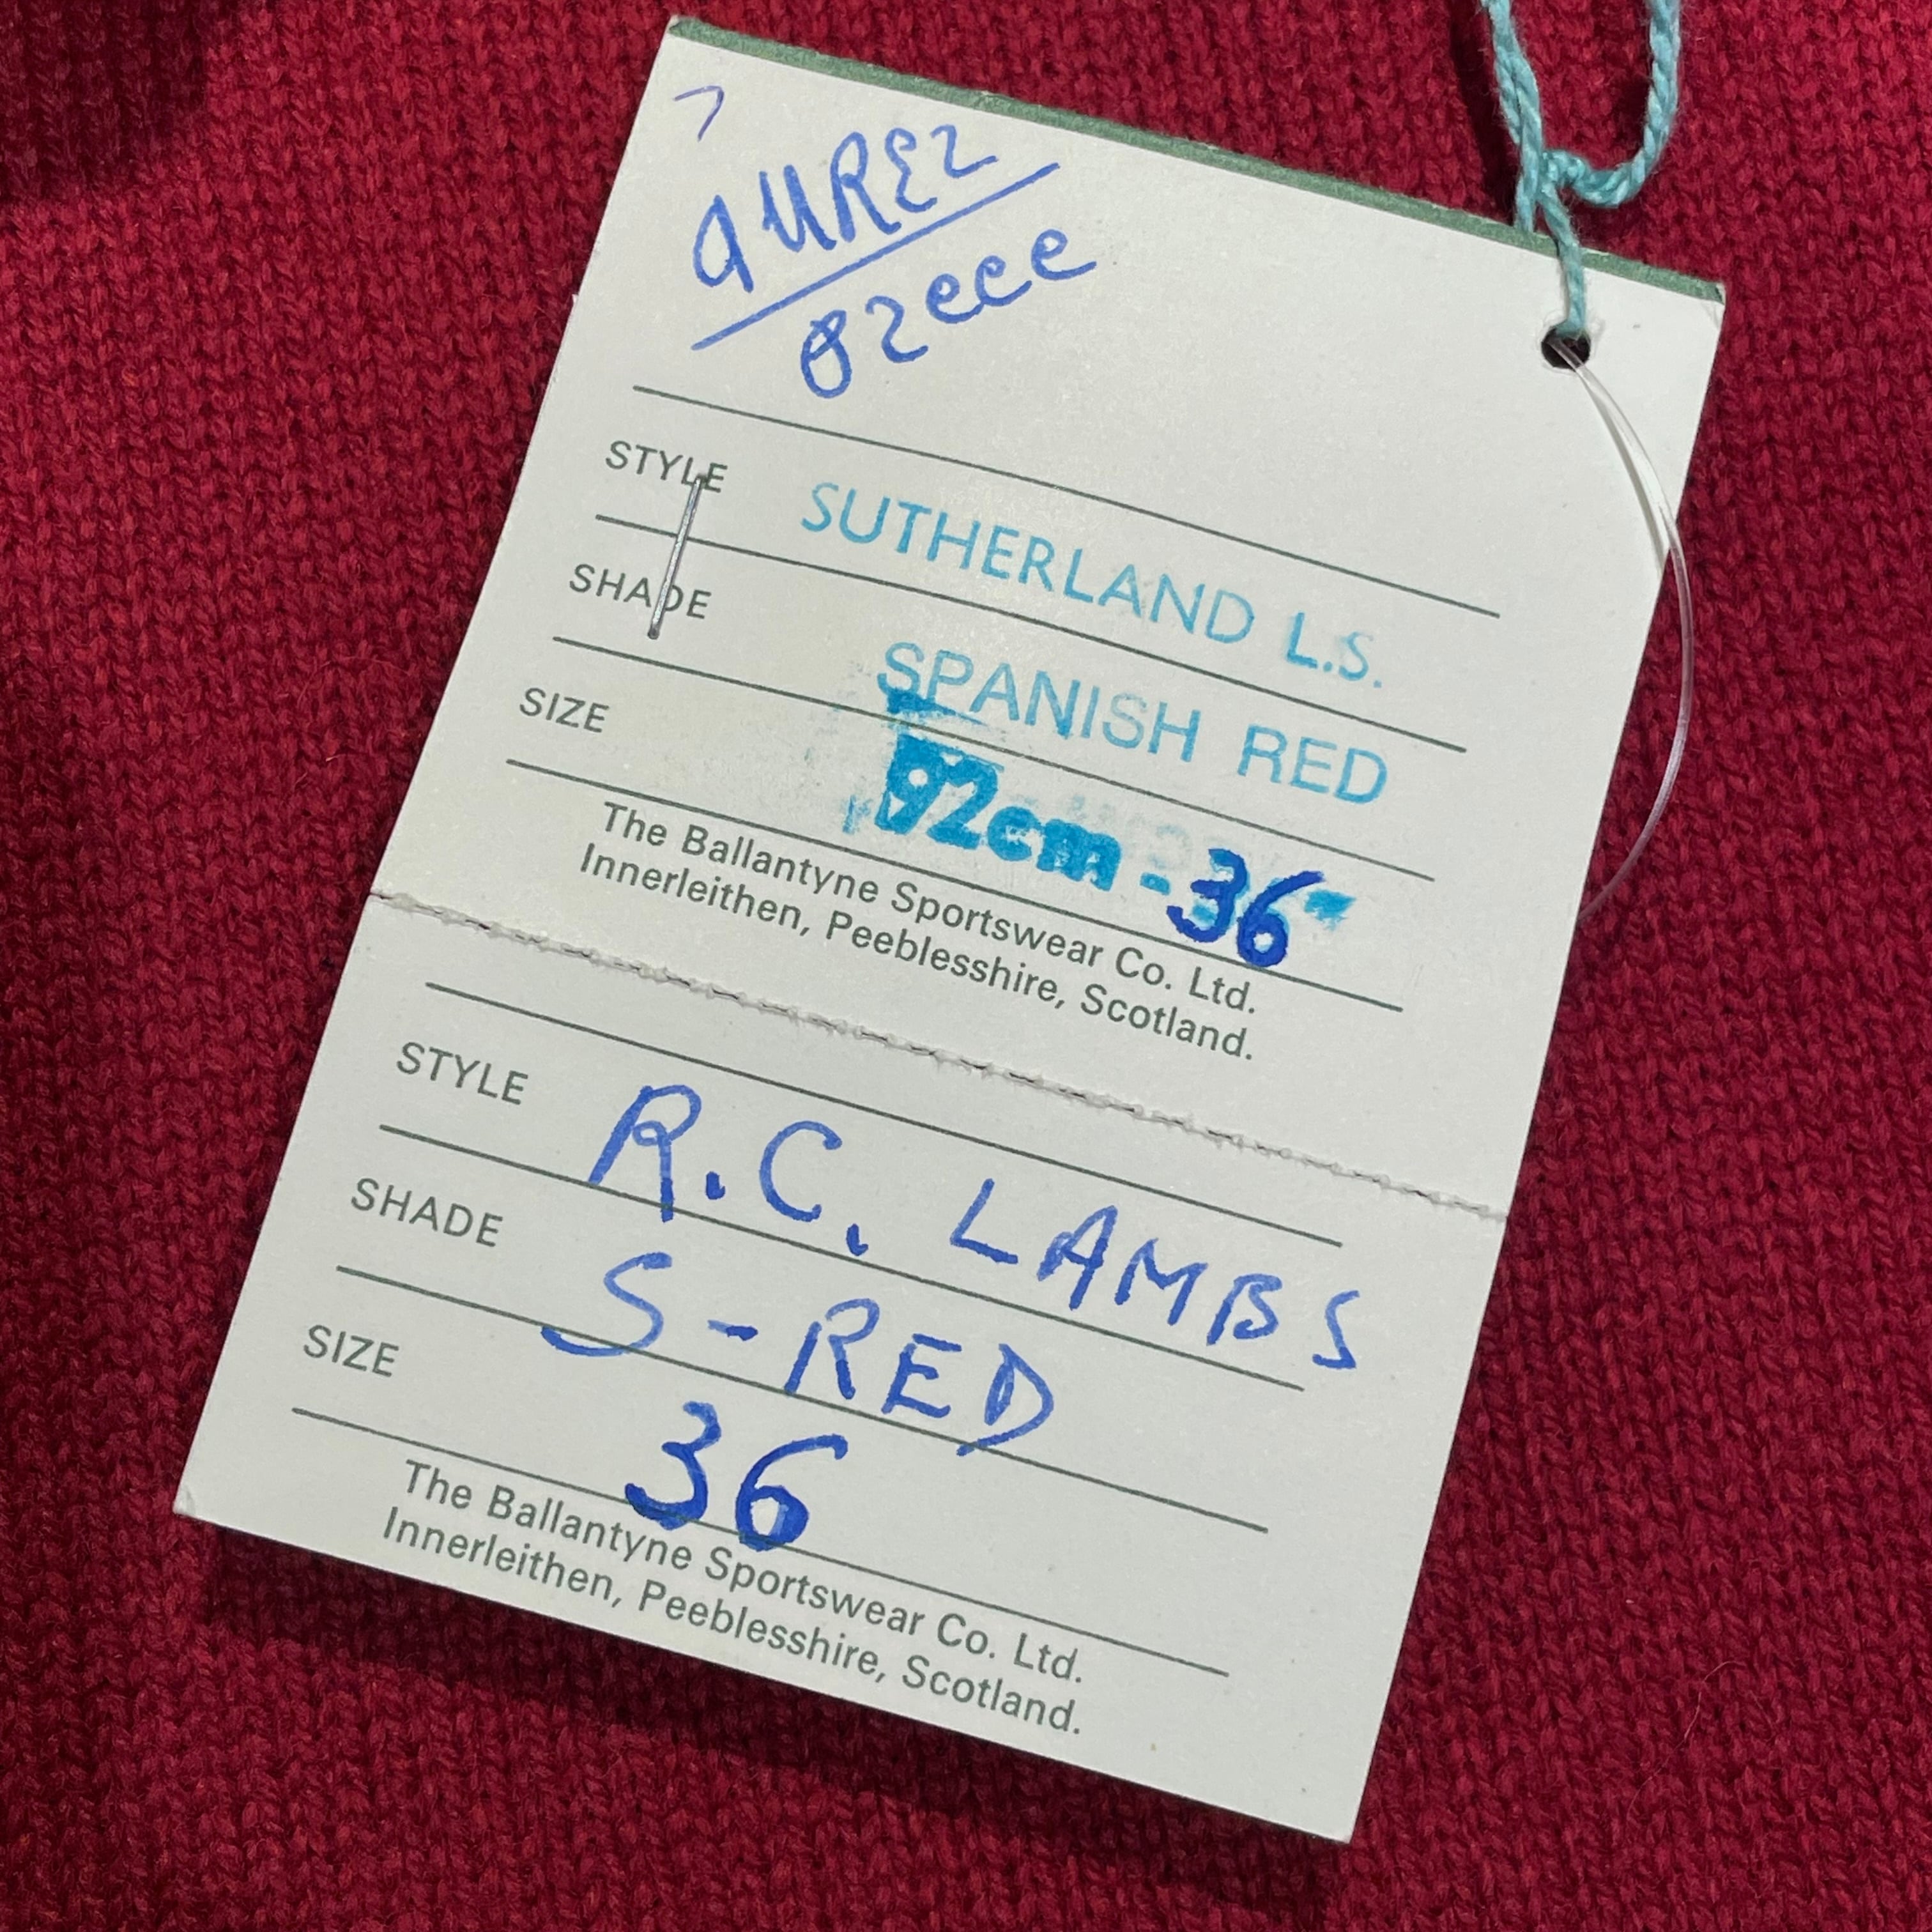 STYLE SUTHERLAND L.S.
SHADE SPANISH RED
SIZE 92cm - 36"
The Ballantyne Sportswear Co. Ltd.
Innerleithen, Peeblesshire, Scotland.
STYLE R.C. LAMBS
SHADE S-RED
SIZE 36
The Ballantyne Sportswear Co. Ltd.
Innerleithen, Peeblesshire, Scotland.